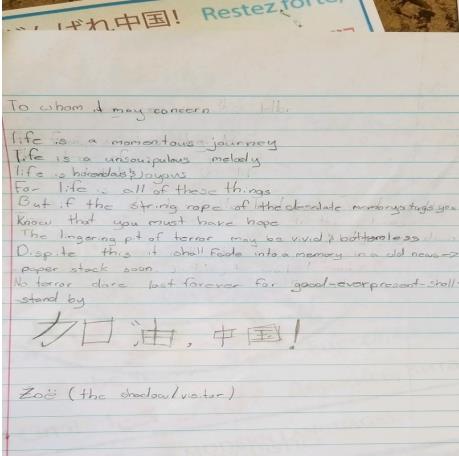 がんばれ中国! Restez forte,
To whom it may concern
life is a momentous journey
life is a melody
life is joyous
For life is all of these things
But if the string rope of the desolate memorys tugs you
Know that you must have hope
The lingering pit of terror may be vivid & bottomless
Dispite this it shall fade into a memory in a old news->
paper stack soon.
No terror dare last forever for good-everpresent-shall
stand by
加口油,中国!
Zoë (the shadow/visitor)